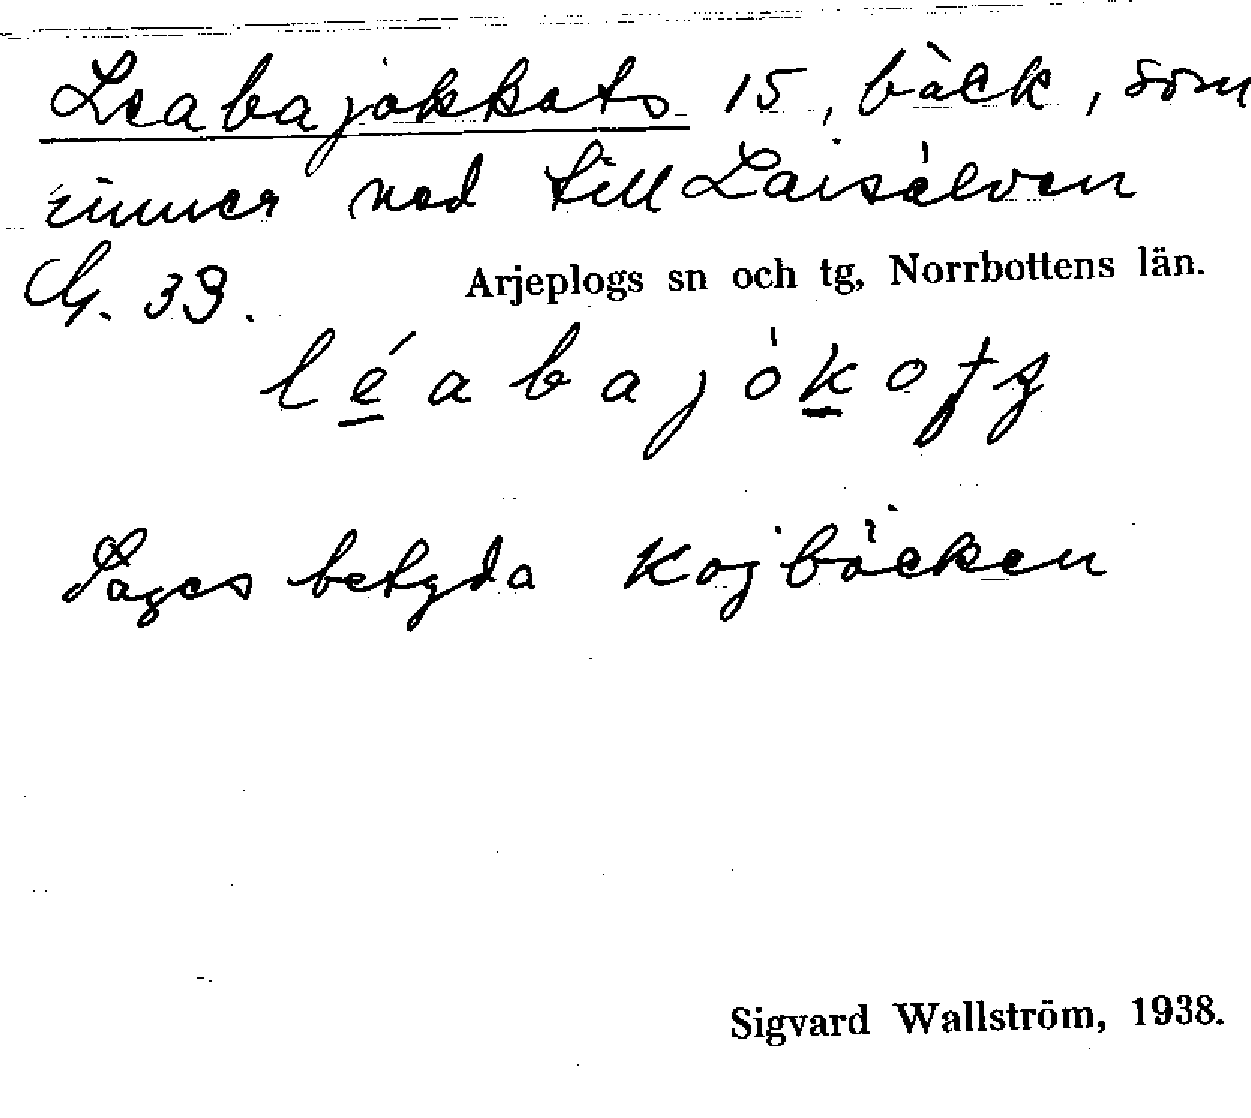 Leabajåkkats 15, bäck, som
rinner ned till Laisälven
G. 39. Arjeplogs sn och tg, Norrbottens län.
léabajòkotʒ
Sages betyda Kojbäcken
Sigvard Wallström, 1938.